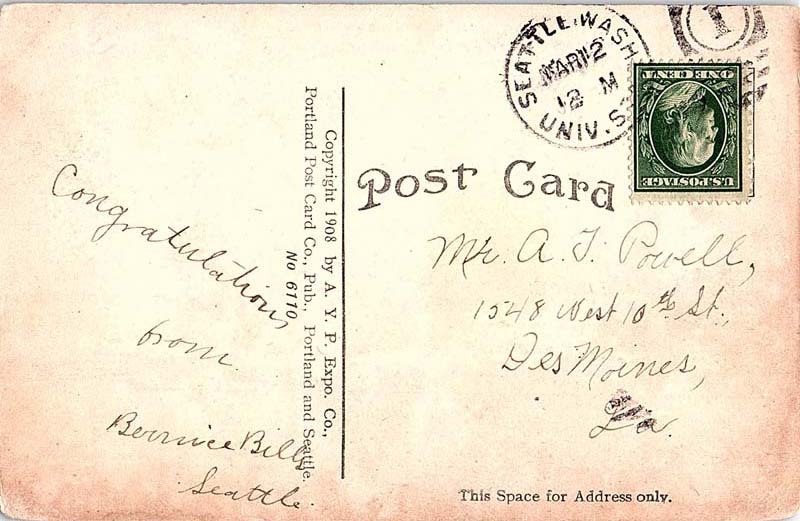 SEATTLE, WASH.
MAR 12
12 M
UNIV. STA.
1
ONE CENT
U.S. POSTAGE
Post Card
Copyright 1908 by A. Y. P. Expo. Co.,
Portland Post Card Co., Pub., Portland and Seattle.
No 6110
Congratulations
from
Bernice Bills
Seattle.
Mr. A. T. Powell,
1548 West 10th St.,
Des Moines,
Ia.
This Space for Address only.